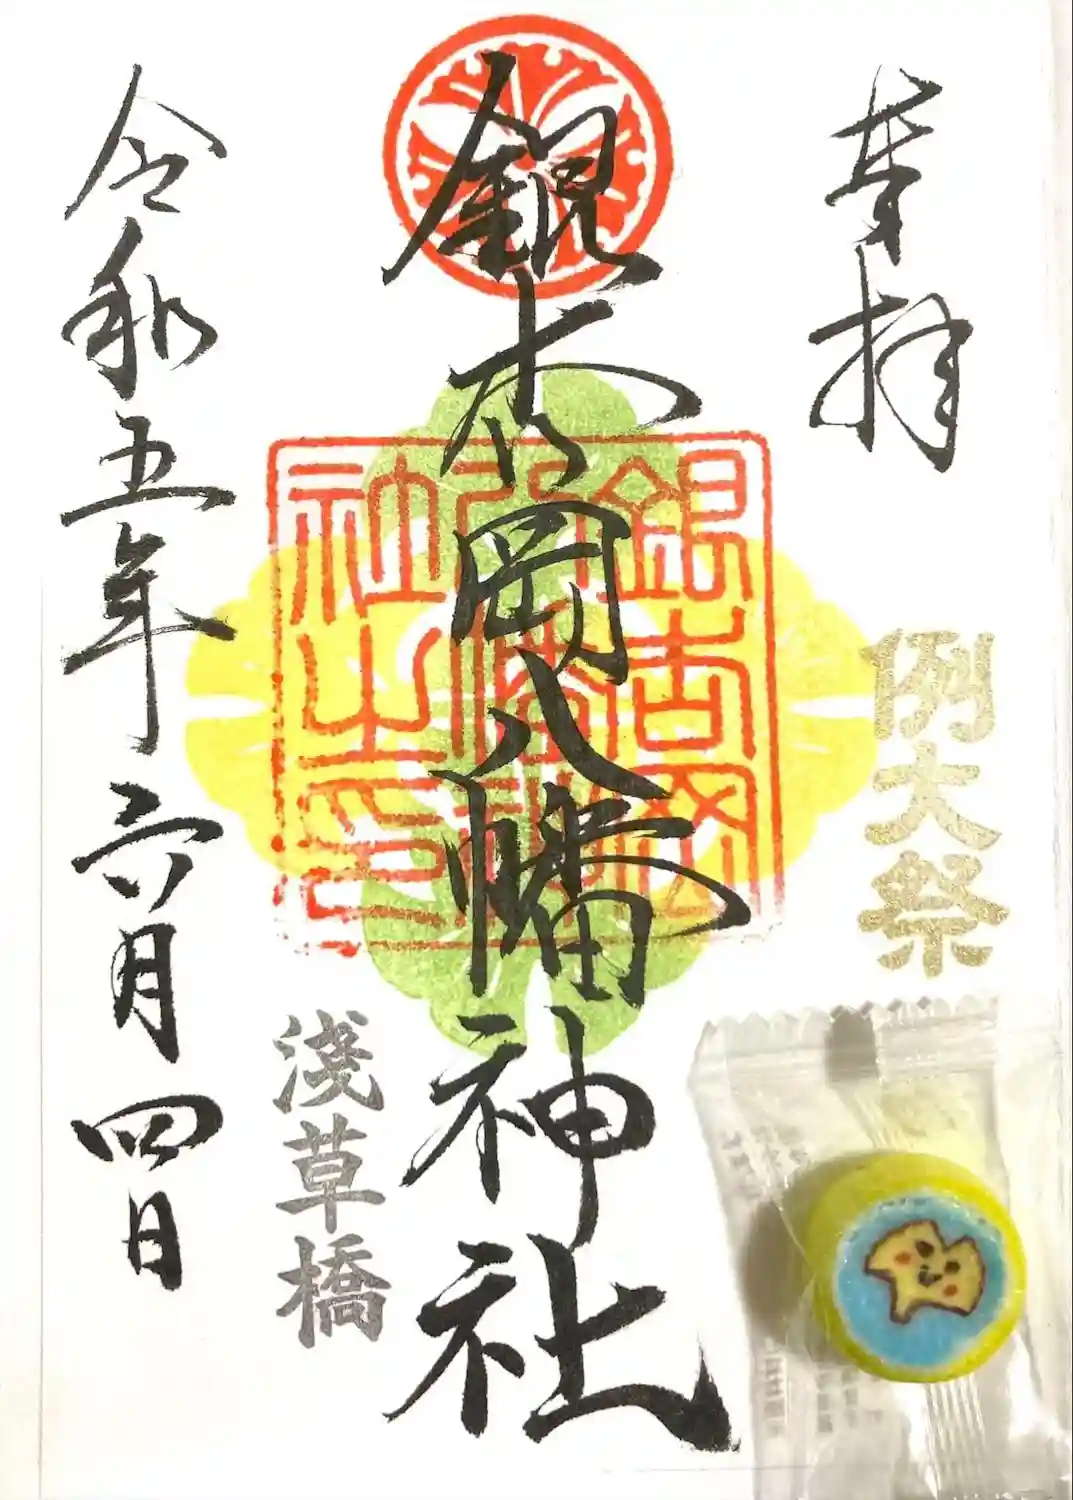 奉拝
例大祭
銀杏岡八幡神社
銀杏岡
八幡神
社之印
淺草橋
令和五年六月四日